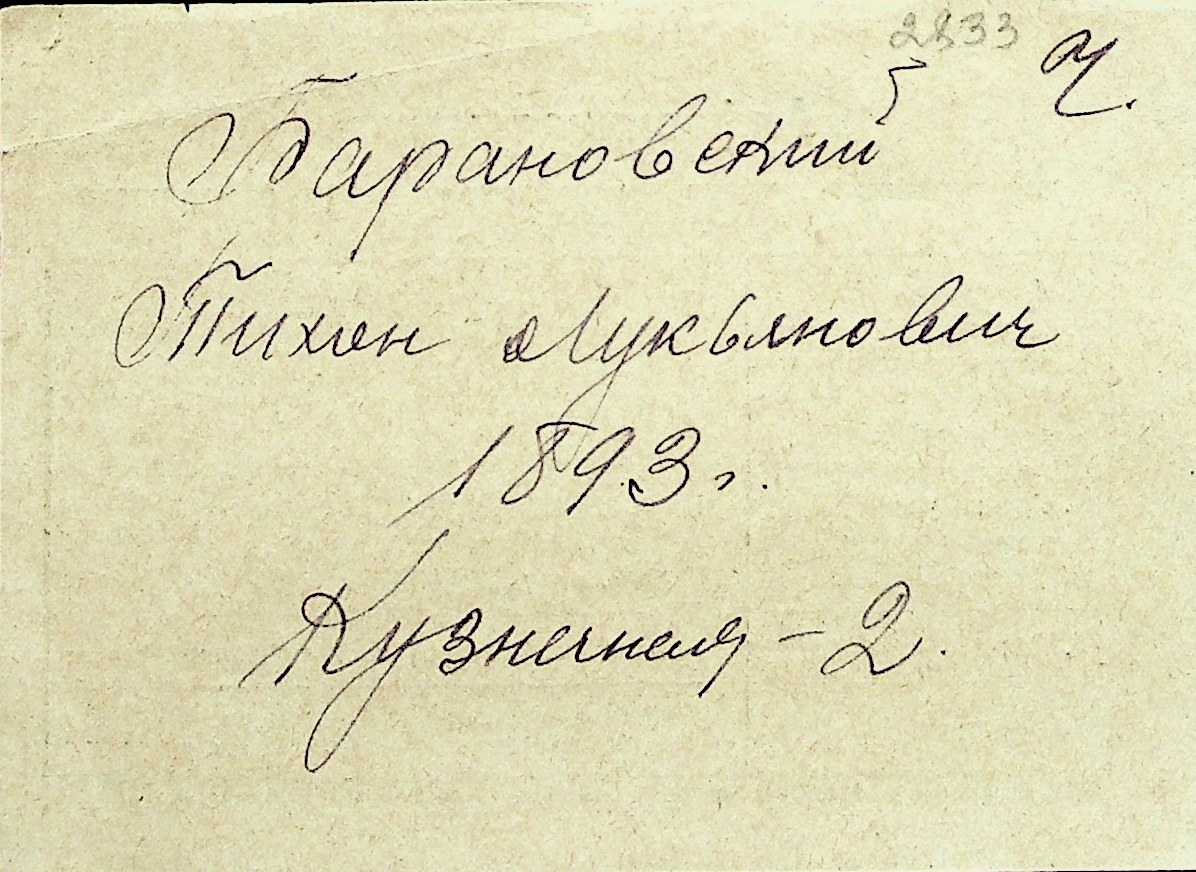 2833
Ч.
Барановский
Тихон Лукьянович
1893 г.
Кузнечная - 2.